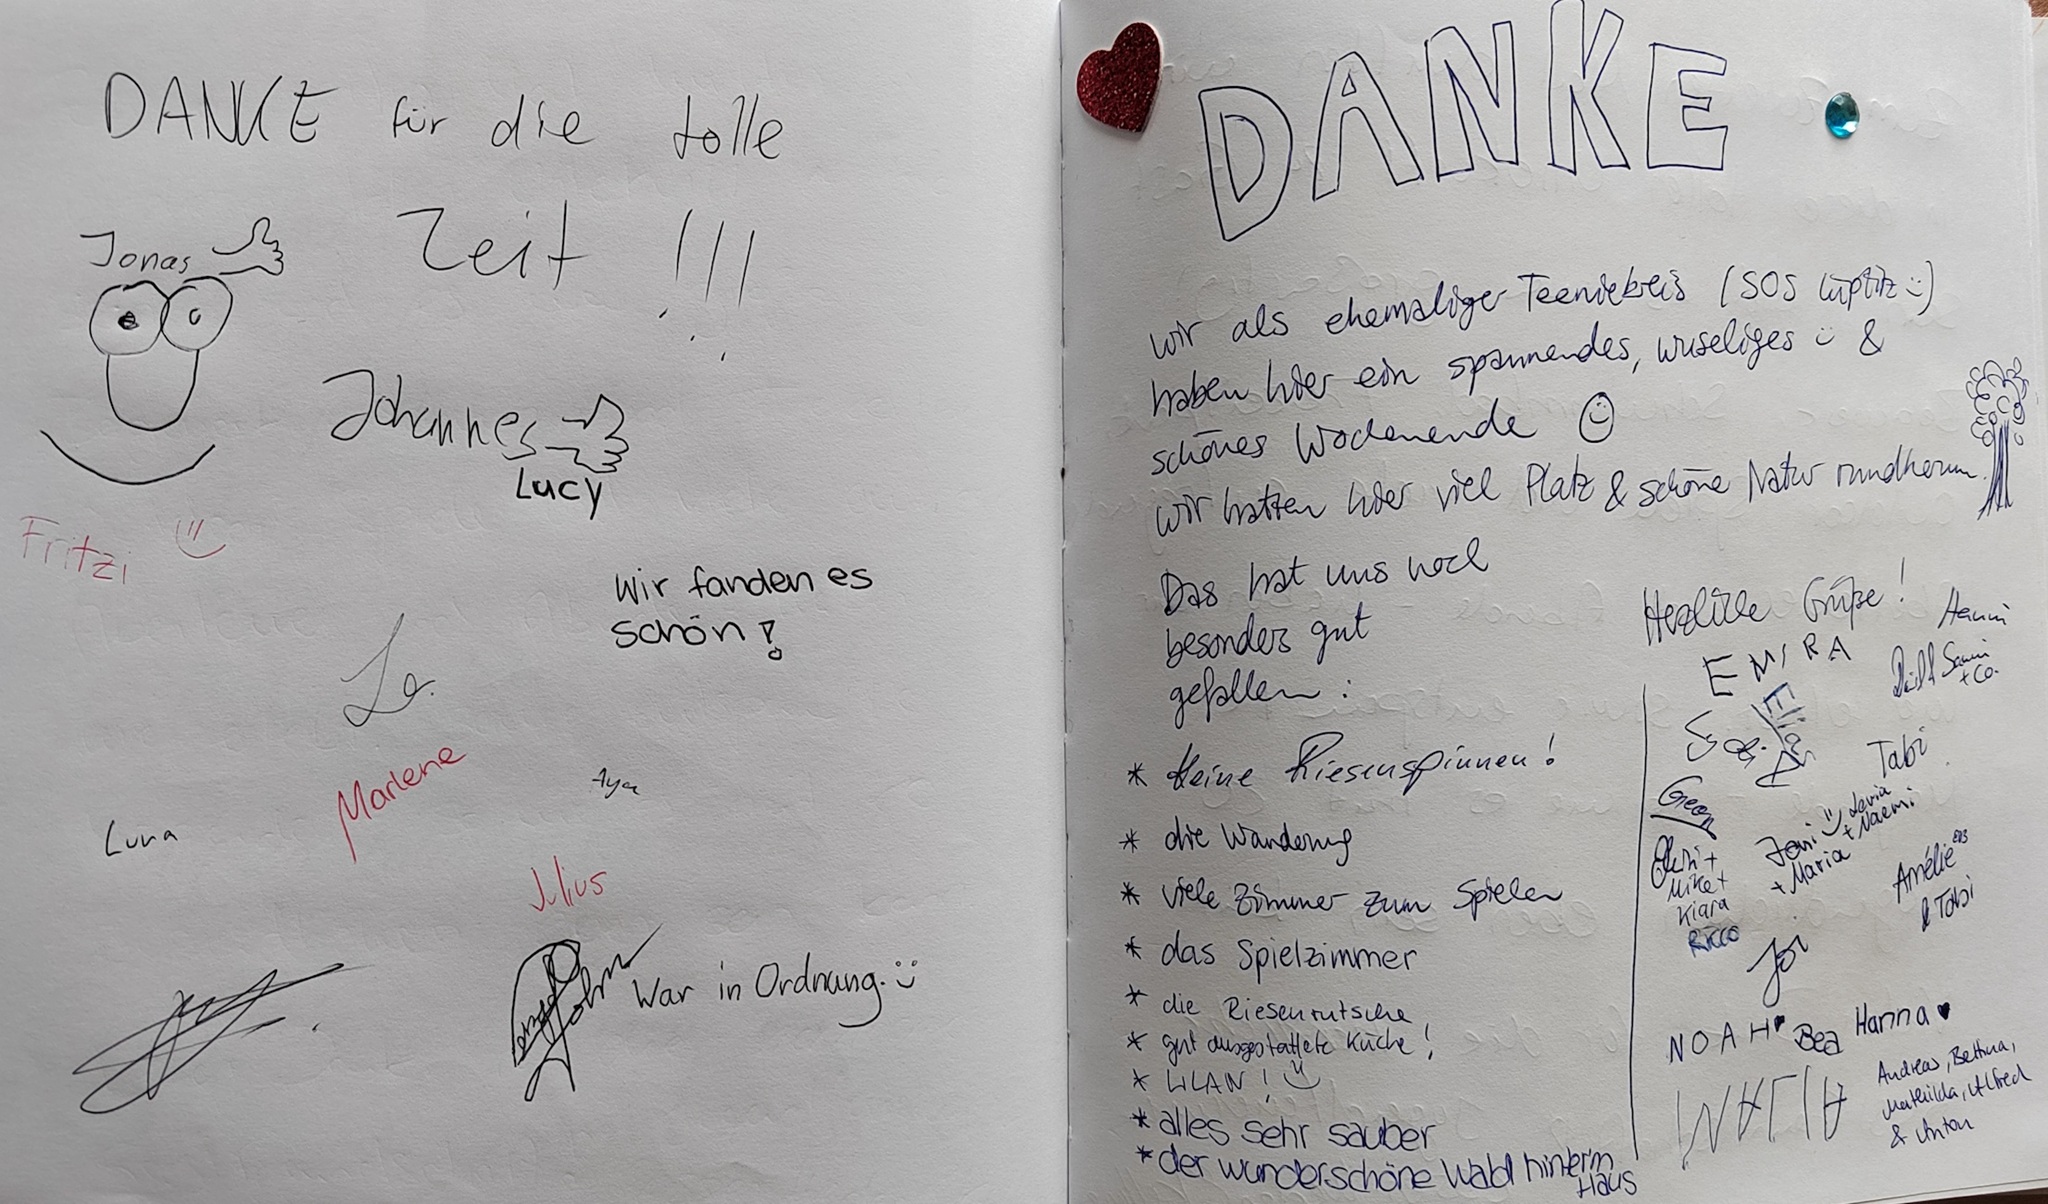 DANKE für die tolle
Zeit !!!
Jonas
Johannes
Lucy
Fritzi
Wir fanden es
schön!
Le.
Marlene
Aya
Luna
Julius
John War in Ordnung.
DANKE
wir als ehemaliger Teeniekreis (SOS Lüptitz)
haben hier ein spannendes, wuseliges &
schönes Wochenende
wir hatten hier viel Platz & schöne Natur rundherum.
Das hat uns noch
besonders gut
gefallen:
* keine Riesenspinnen!
* die Wanderung
* viele Zimmer zum Spielen
* das Spielzimmer
* die Riesenrutsche
* gut ausgestattete Küche!
* WLAN!
* alles sehr sauber
* der wunderschöne Wald hinterm
Haus
Herzliche Grüße!
Henni
EMIRA
Sanni
+ Co.
Elian
Tabi
Joni + Levia
+ Naemi
+ Maria
Mike +
Kiara
Ricco
Amélie
& Tobi
NOAH Bea Hanna
Andreas, Bettina,
Mathilda, Alfred
& Anton